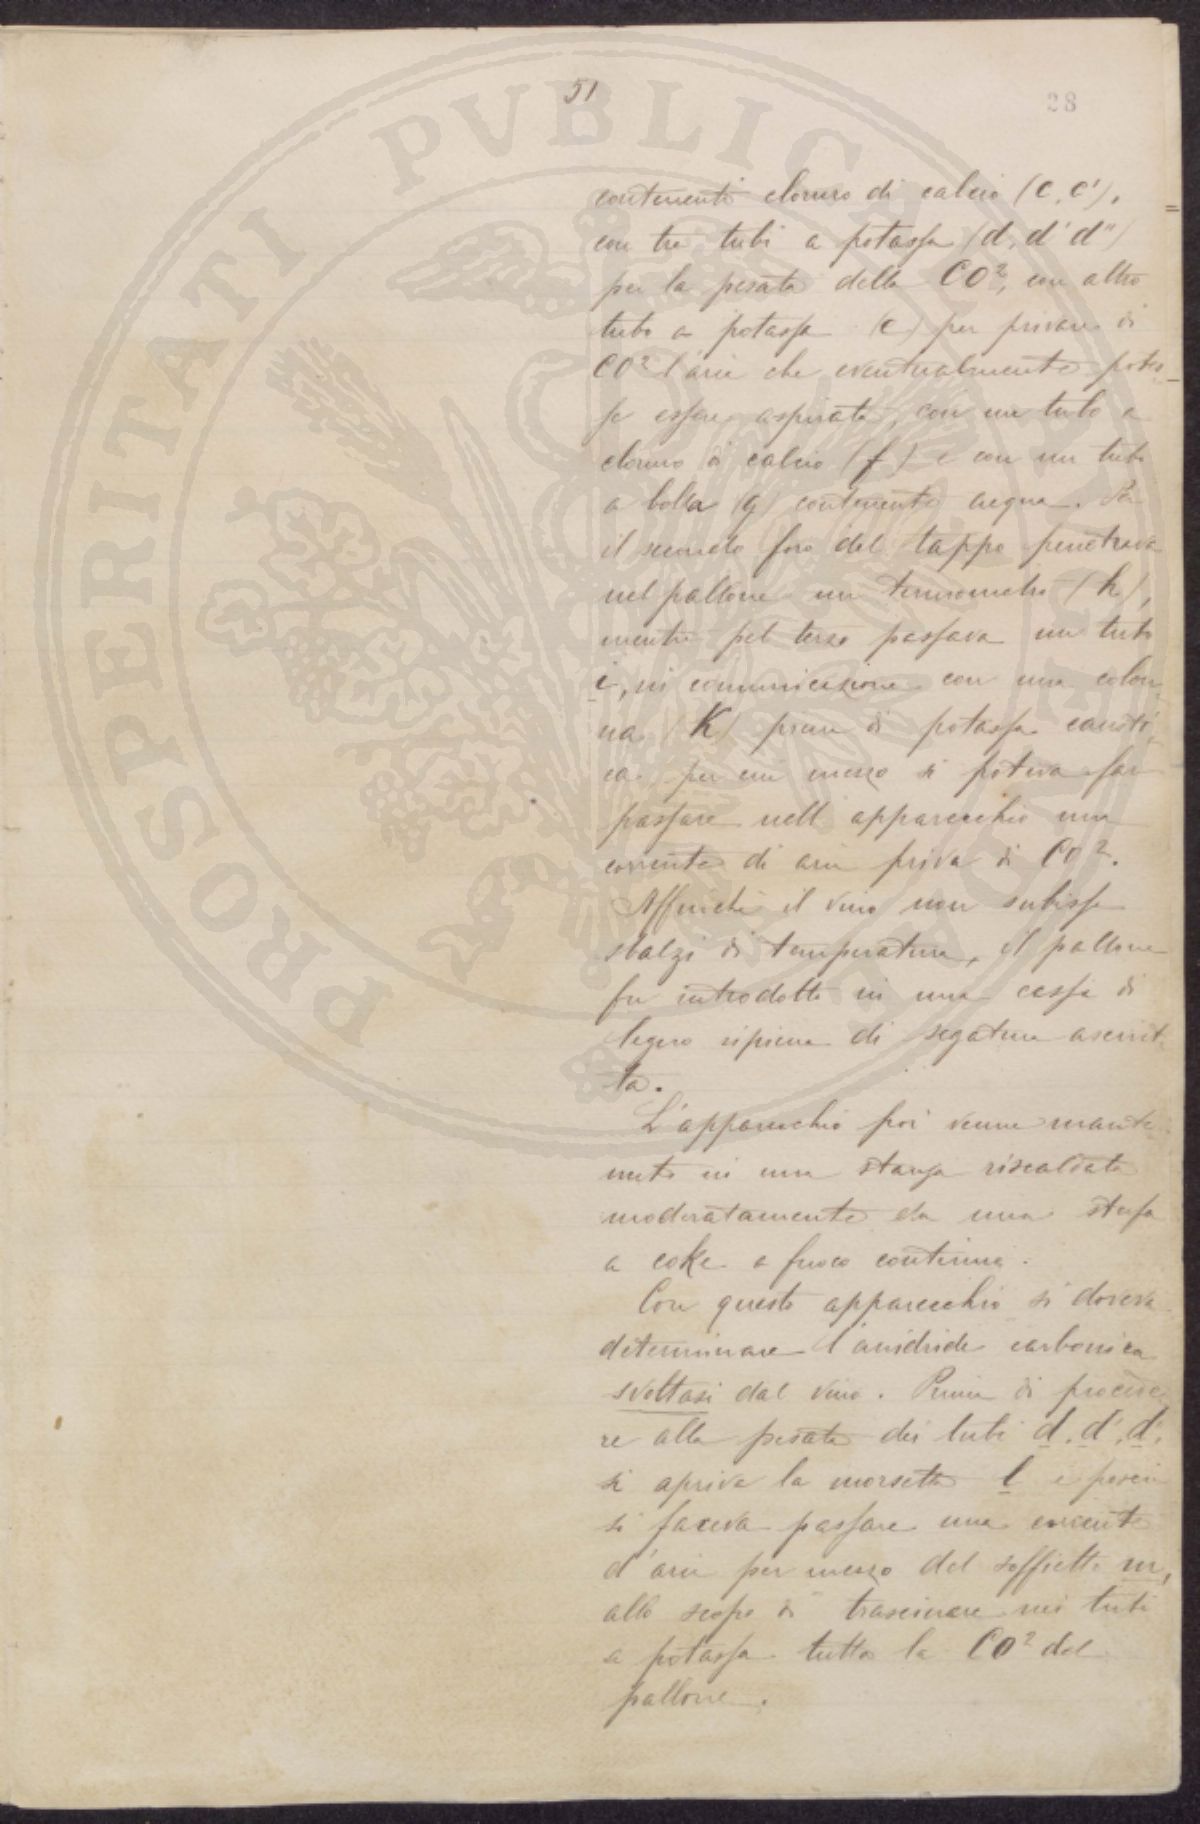 51
28
contenenti cloruro di calcio (c, c'),
con tre tubi a potassa (d, d' d'')
per la pesata della CO², con altro
tubo a potassa (e) per privare di
CO² l'aria che eventualmente potes-
se essere aspirata, con un tubo a
cloruro di calcio (f) e con un tubo
a bolla (g) contenente acqua. Pel
il secondo foro del tappo penetrava
nel pallone un termometro (h),
mentre pel terzo passava un tubo
i, in comunicazione con una colon-
na (K) piena di potassa causti-
ca per cui mezzo si poteva far
passare nell'apparecchio una
corrente di aria priva di CO².
Affinché il vino non subisse
sbalzi di temperatura, il pallone
fu introdotto in una cassa di
legno ripiena di segatura asciut-
ta.
L'apparecchio poi venne mante-
nuto in una stanza riscaldata
moderatamente da una stufa
a coke a fuoco continuo.
Con questo apparecchio si doveva
determinare l'anidride carbonica
svoltasi dal vino. Prima di procede-
re alla pesata dei tubi d, d', d'',
si apriva la morsetta l e poscia
si faceva passare una corrente
d'aria per mezzo del soffietto m,
allo scopo di trascinare nei tubi
a potassa tutta la CO² del
pallone.
PROSPERITATI PVBLICAE